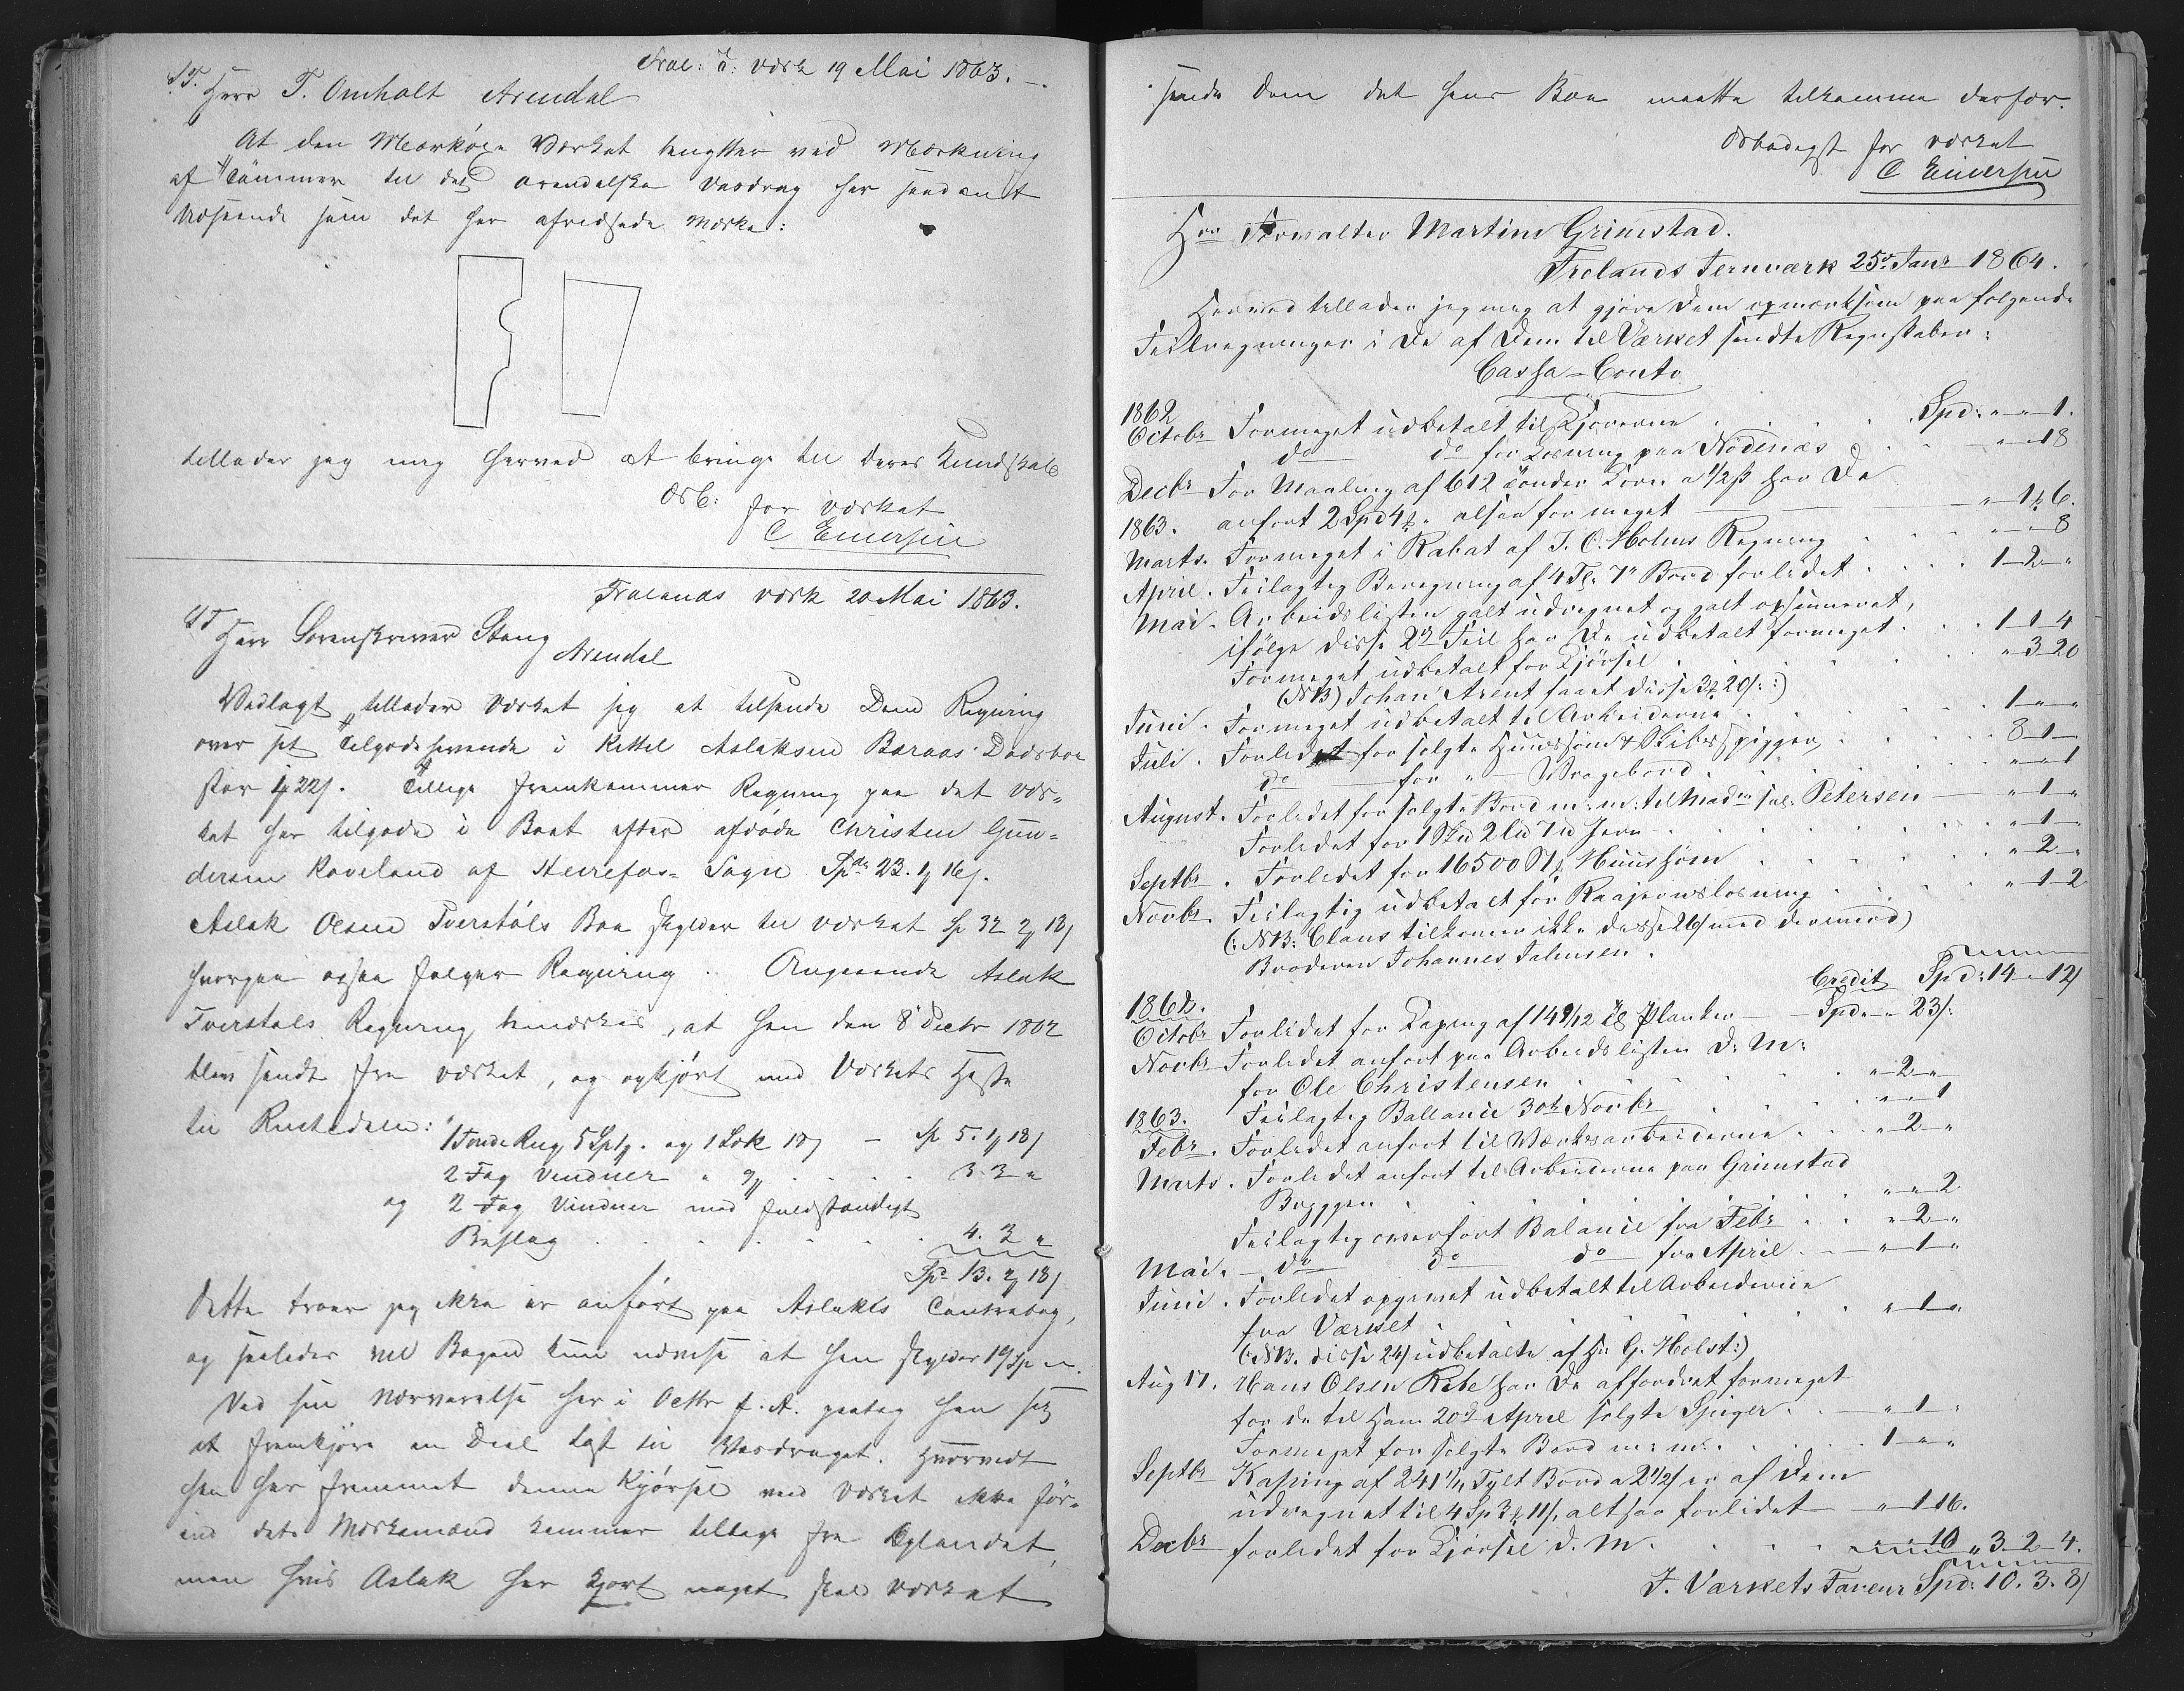 Frol: J: værk 19 Mai 1863.
S.T. Herr T. Omholt Arendal
At den Mærkøxe Værket benytter ved Mærkning
af Tømmer til det arendalske Vasdrag har saadant
Udseende som det her afridsede Mærke:
tillader jeg mig herved at bringe til Deres Kundskab
Ærb: for Værket
C Enersen
Frolands værk 20 Mai 1863.
ST Herr Sorenskriver Stang
Arendal
Vedlagt tillader Værket sig at tilsende Dem Regning
over sit Tilgodehavende i Kittel Aslaksen Baraas Dødsboe
stor 22 s. Tillige fremkommer Regning paa det Vær-
ket har tilgode i Boet efter afdøde Christen Gun-
dersen Raveland af Herrefos Sogn Spdr 23. 1 16 s.
Aslak Olsen Tverstøls Boe skylder til Værket Sp 32 2 18 s
hvorpaa ogsaa følger Regning. Angaaende Aslak
Tverstøls Regning bemærkes, at han den 8 Decbr 1862
blev sendt fra Værket, og opkjørt med Værkets Heste
til Rustedalen:
1 Tønde Rug 5 Sp og 1 Sæk 18 s – Sp 5. 1 18 s
2 Fag Vinduer . . . 3. 3 "
og 2 Fag Vinduer med fuldstændigt
Beslag . . . . . . 4. 2 "
Spd 13. 2 18 s
Dette troer jeg ikke er anført paa Aslaks Contrabog,
og saaledes vil Bogen kun udvise at han skylder 19 Sp
Ved sin Nærværelse her i Octbr f. A. paatog han sig
at fremkjøre en Deel Last til Vasdraget. Hvorvidt
han har fremmet denne Kjørsel veed Værket ikke før-
end dets Mærkemænd kommer tilbage fra Oplandet,
men hvis Aslak har kjørt noget skal Værket
sende Dem det hans Boe maatte tilkomme derfor.
Ærbødigst for Værket
C Enersen
Hrr Forvalter Martini Grimstad.
Frolands Jernværk 25de Janr 1864.
Herved tillader jeg mig at gjøre Dem opmærksom paa følgende
Feilregninger i de af Dem til Værket sendte Regnskaber:
Cassa-Conto
1862
Octobr Formeget udbetalt til Kjørerne . . . Spd: " – " – 1.
do do for Losning paa Nødenæs . . " – " 18
Decbr For Maaling af 612 Tønder Korn a 1/2 ß har De
1863. anført 2 Spd 4 " altsaa for meget " 1 6.
Marts. Formeget i Rabat af J. C. Holms Regning . . . " – " 8
April. Feilagtig Beregning af 4 Tl. 7" Bord forlidet . . . 1 – 2 – "
Mai. Arbeidslisten galt udregnet og galt opsummeret,
ifølge disse 2de Feil har De udbetalt formeget . . 1 – 1 – 4
Formeget udbetalt for Kjørsel . . . . " – 3 – 20
(NB) Johan Arent faaet disse 3 20 s:)
Juni. Formeget udbetalt til Arbeiderne . . . . 1 – " – "
Juli. Forlidet for solgte Huussøm & Skibsspigger . . . 8 – 1 – "
do for " Vragebord . . . . " – " – 1
August. Forlidet for solgte Bord m: m: til Mad sal: Petersen " – 1 – "
Forlidet for 1 Skd 2 Ld 7 d Jern . . . . " – 1 – "
Septbr. Forlidet for 16500 St Huussøm . . . . " 2 "
Novbr. Feilagtig udbetalt for Raajernslosning . . . . " – 1 – 2
(: NB: Claus tilkommer ikke disse 26 s med derimod)
Broderen Johannes Salmsen.
Spd: 14 " 12 s
Credit
1862.
Octobr Forlidet for Kaping af 149/12 Tl Planker Spd " " 23 s:
Novbr Forlidet anført paa Arbeidslisten D: M:
for Ole Christensen . . . . . " – 2 – "
1863. Feilagtig Ballance 30te Novbr . . . " – " – 1
Febr. Forlidet anført til Værksarbeiderne . . " – 2 – "
Marts. Forlidet anført til Arbeiderne paa Grimstad
Bryggen . . . . . " – " 2
Feilagtig overført Balance fra Febr . . " – 2 – "
Mai. – do do do fra April . . " – 1 – "
Juni. Forlidet opgivet udbetalt til Arbeiderne
fra Værket . . . . . " – 1 – "
(: NB. disse 24 s udbetalte af Hr G. Holst:)
Aug 17. Hans Olsen Rebe har De affordret formeget
for de til Ham 20de April solgte Spiger . . " – 1 –
Formeget for solgte Bord m: m: . . . 1 – " – "
Septbr Kaping af 241 Tylt Bord a 2 1/2 s er af Dem
udregnet til 4 Sp 3 11 s, altsaa forlidet " – 1 16.
Decbr forlidet for Kjørsel d. M. . . . 10 " 3 – 2 – 4.
I. Værkets Faveur Spd: 10. 3. 8 s